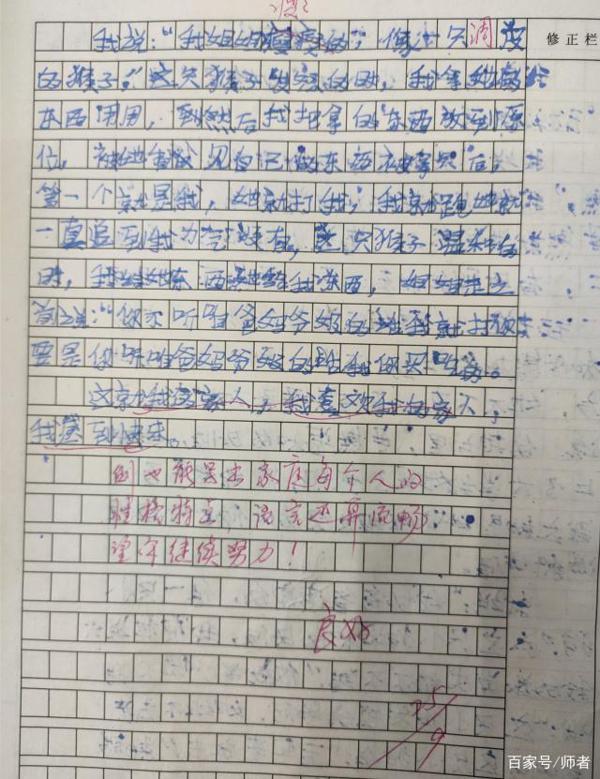 修正栏
我说：“我姐姐瘦瘦的，像一只调皮
的猴子。”这只猴子发怒的时，我拿她的
东西用用，到然后我把拿的东西放到原
位，被她发见自己的东西被拿后，
第一个就是我，她就打我，我就跑她就
一直追到我力气没有，这只猴子温和的
时，我给她东西她给我东西，姐姐走之
前说：“你不听爸妈爷奶的话我就打你
要是你听爸妈爷奶的话我你买吃的。
这就我的家人，我喜欢我的家人，
我感到快乐。
倒也能写出家庭每个人的
性格特点，语言还算流畅
望今继续努力！
良好
25/9
百家号/师者